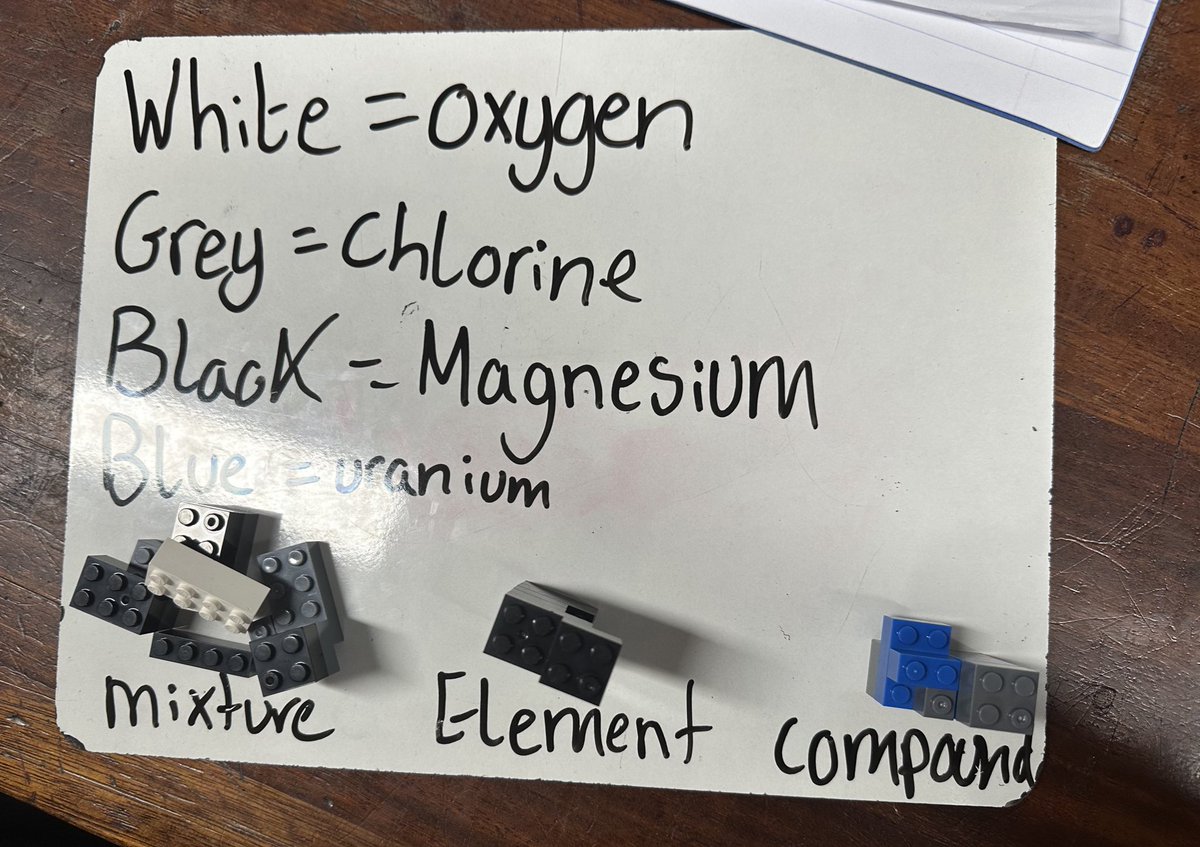 White = Oxygen
Grey = Chlorine
Black = Magnesium
Blue = uranium
mixture Element compound